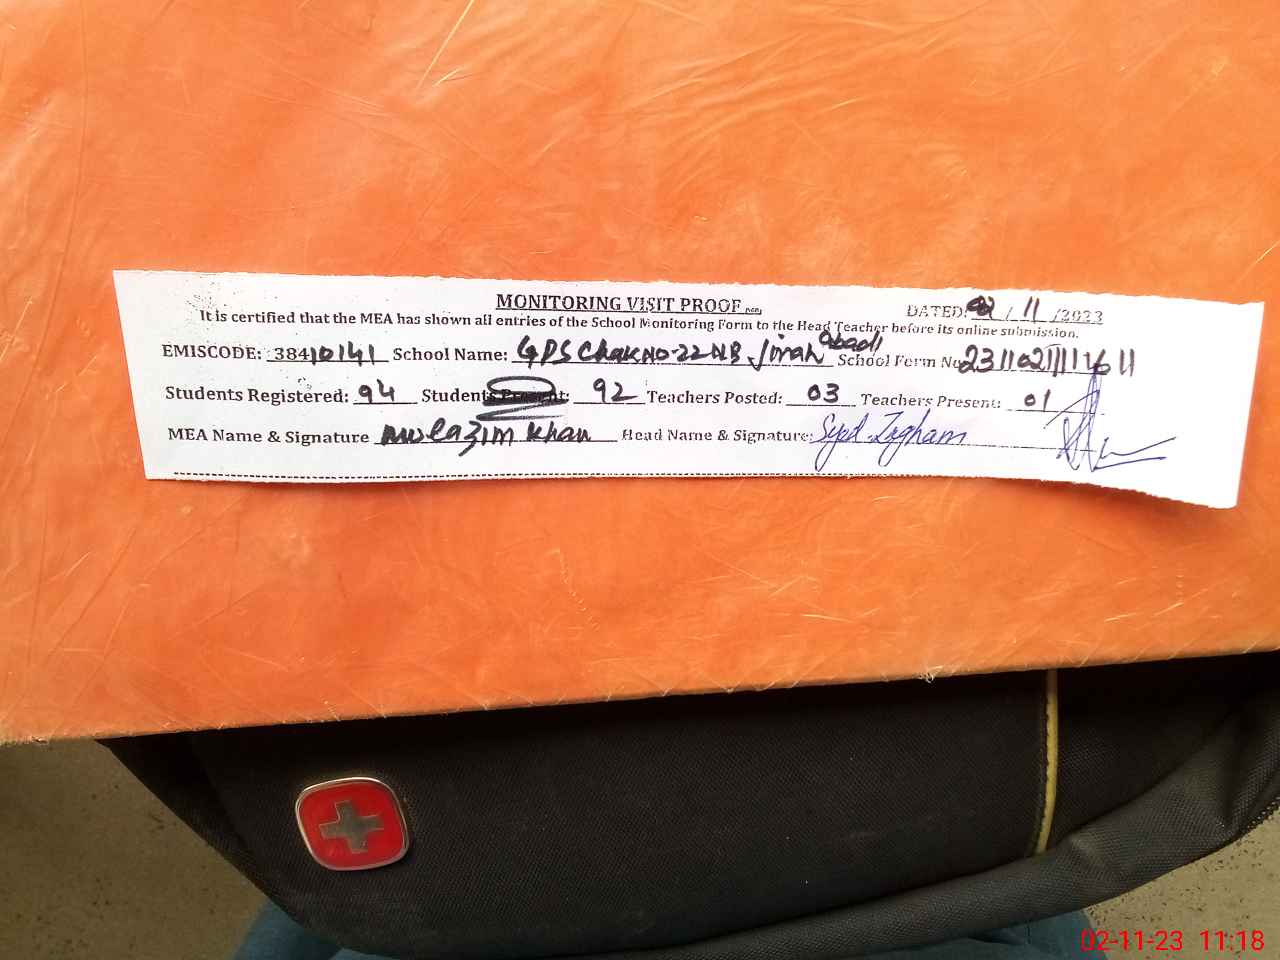 MONITORING VISIT PROOF
DATED: 02/11/2023
It is certified that the MEA has shown all entries of the School Monitoring Form to the Head Teacher before its online submission.
EMISCODE: 38410141 School Name: GPS Chak No-22 NB Jinah Abadi School Form No
Students Registered: 94 Students Present: 92 Teachers Posted: 03 Teachers Present: 01
MEA Name & Signature Mulazim Khan Head Name & Signature: Syed Zagham
02-11-23 11:18